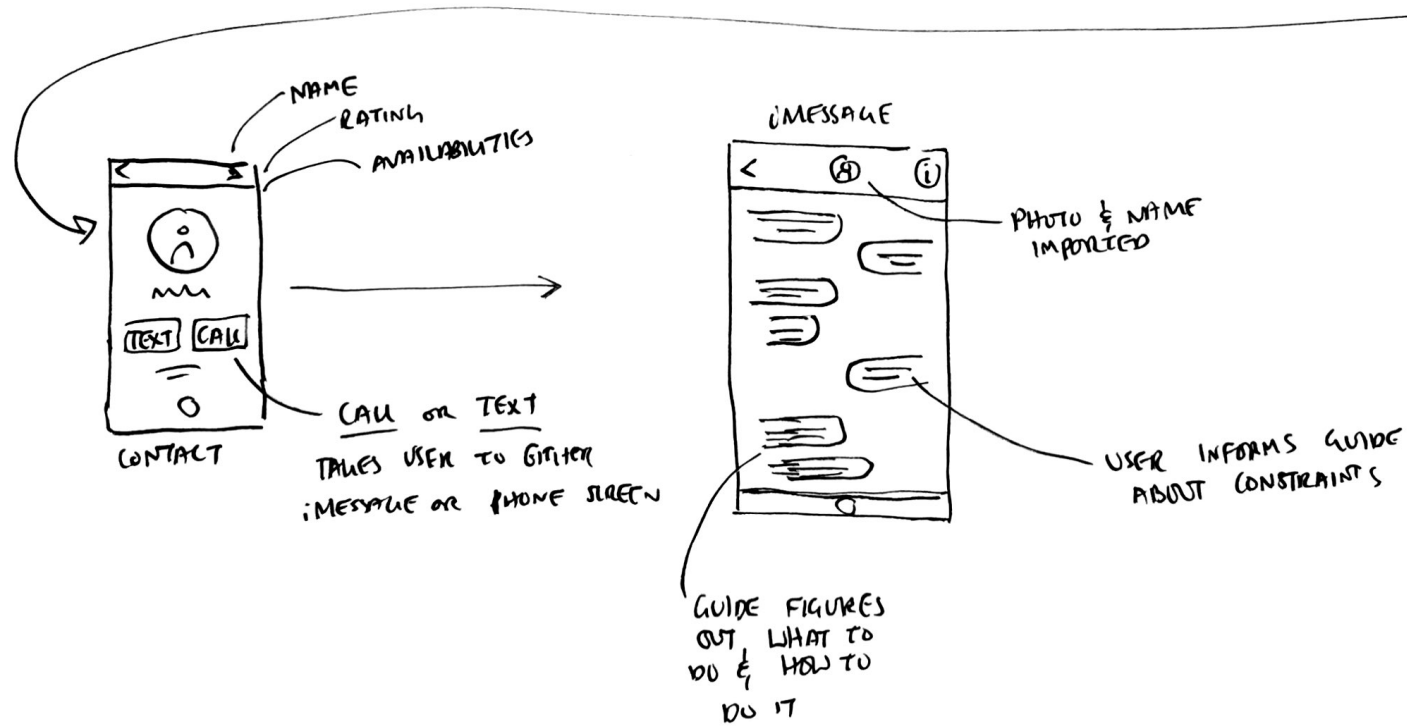 NAME
RATING
AVAILABILITIES
TEXT
CALL
CONTACT
CALL OR TEXT
TAKES USER TO EITHER
iMESSAGE OR PHONE SCREEN
iMESSAGE
i
PHOTO & NAME
IMPORTED
USER INFORMS GUIDE
ABOUT CONSTRAINTS
GUIDE FIGURES
OUT WHAT TO
DO & HOW TO
DO IT